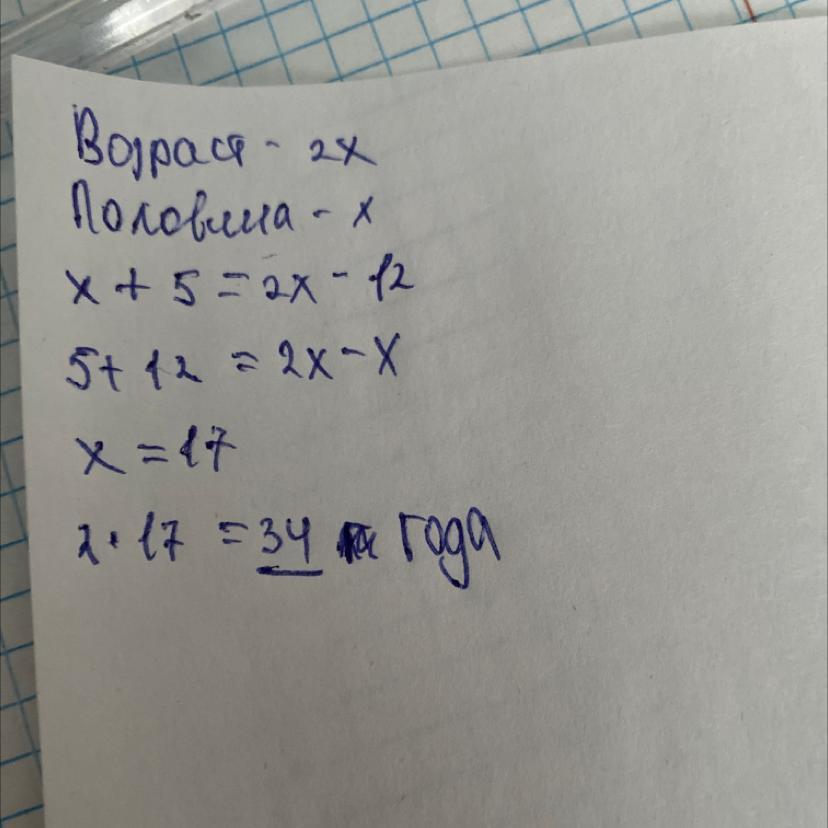 Возраст - 2x
Половина - x
x + 5 = 2x - 12
5 + 12 = 2x - x
x = 17
2 · 17 = 34 года